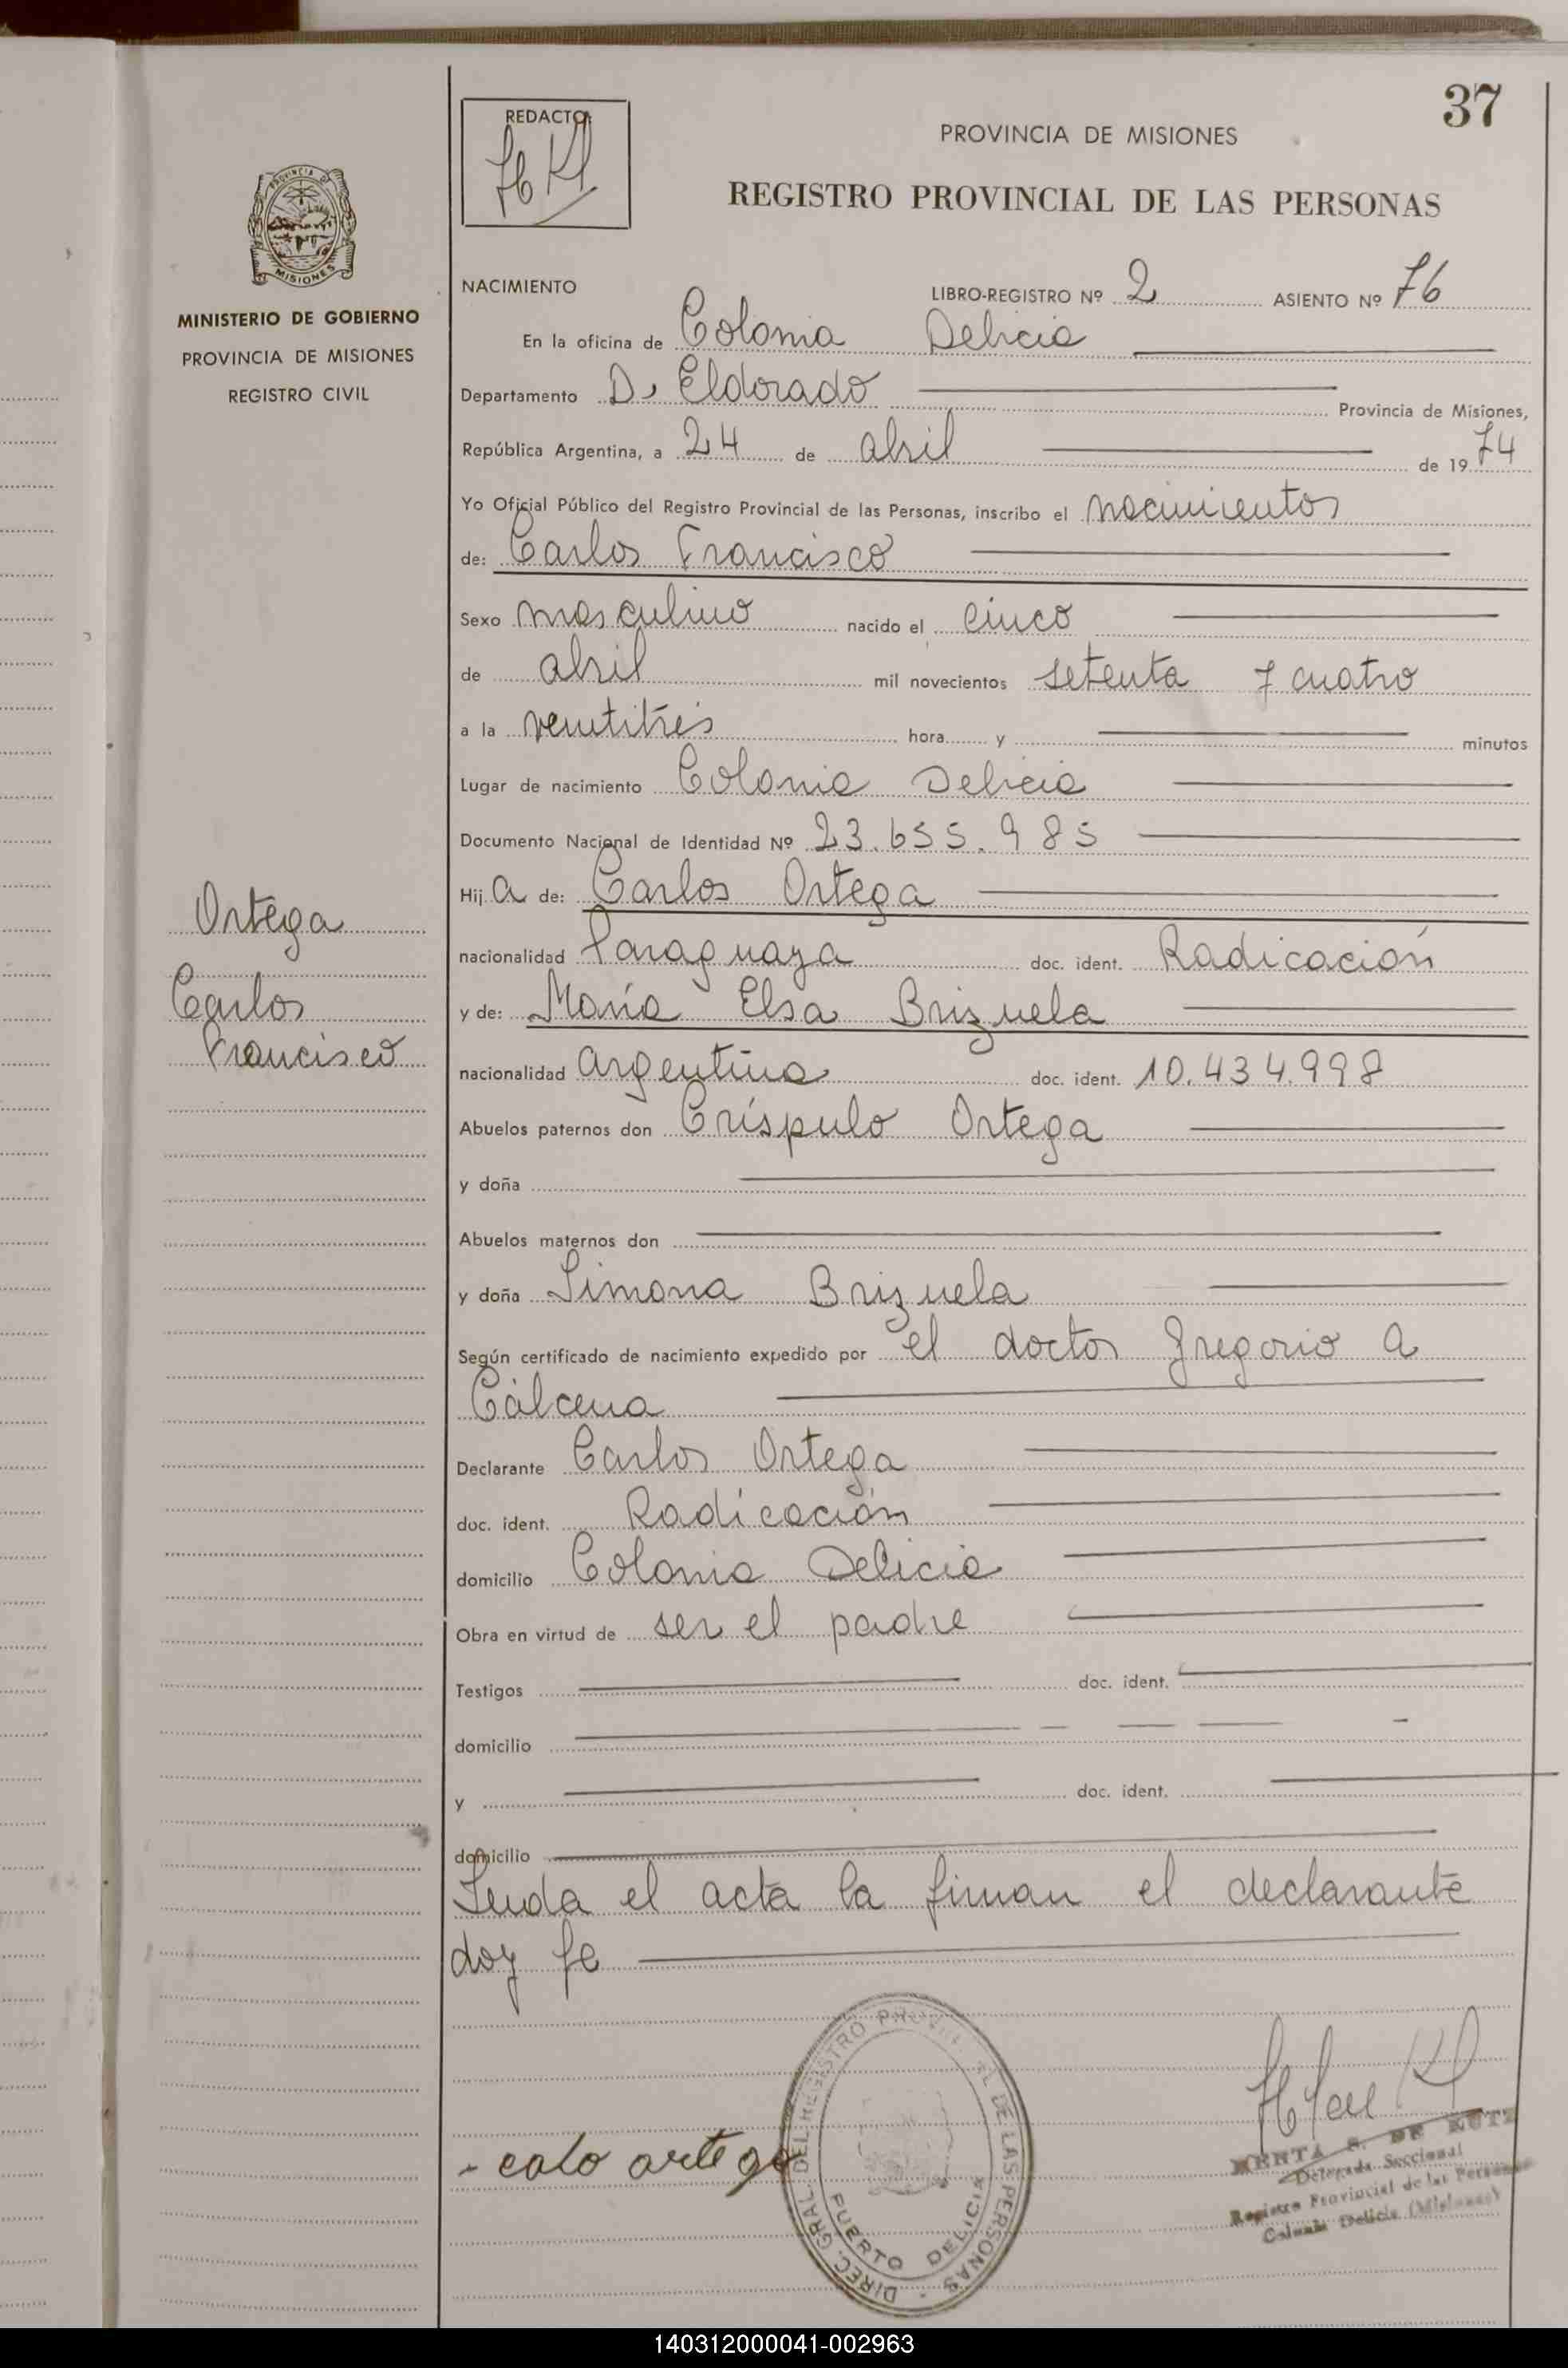 37
REDACTO:
PROVINCIA DE MISIONES
REGISTRO PROVINCIAL DE LAS PERSONAS
PROVINCIA DE
MISIONES
MINISTERIO DE GOBIERNO
PROVINCIA DE MISIONES
REGISTRO CIVIL
NACIMIENTO LIBRO-REGISTRO Nº 2 ASIENTO Nº 76
En la oficina de Colonia Delicia
Departamento D. Eldorado Provincia de Misiones,
República Argentina, a 24 de abril de 1974
Yo Oficial Público del Registro Provincial de las Personas, inscribo el nacimientos
de: Carlos Francisco
Sexo masculino nacido el cinco
de abril mil novecientos setenta y cuatro
a la ventitrés hora y minutos
Lugar de nacimiento Colonia Delicia
Documento Nacional de Identidad Nº 23.655.985
Hij a de: Carlos Ortega
nacionalidad Paraguaya doc. ident. Radicación
y de: María Elsa Brizuela
nacionalidad argentina doc. ident. 10.434.998
Abuelos paternos don Críspulo Ortega
y doña
Abuelos maternos don
y doña Simona Brizuela
Según certificado de nacimiento expedido por el doctor Gregorio A
Cálcena
Declarante Carlos Ortega
doc. ident. Radicación
domicilio Colonia Delicia
Obra en virtud de ser el padre
Testigos doc. ident.
domicilio
y doc. ident.
domicilio
Leuda el acta la firman el declarante
doy fe
Ortega
Carlos
Francisco
- calo ortega
DIREC. GRAL. DEL REGISTRO DE LAS PERSONAS
PUERTO DELICIA
DE
Delegada Seccional
Registro Provincial de las Personas
Colonia Delicia (Misiones)
140312000041-002963